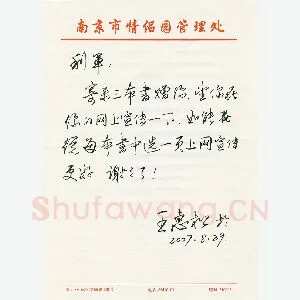 南京市情侣园管理处
利军：
寄来二本书赠你，望你在
你的网上宣传一下，如能在
该每本书中选一页上网宣传
更好 谢谢了！
王惠
2007.8.29
Shufawang.CN